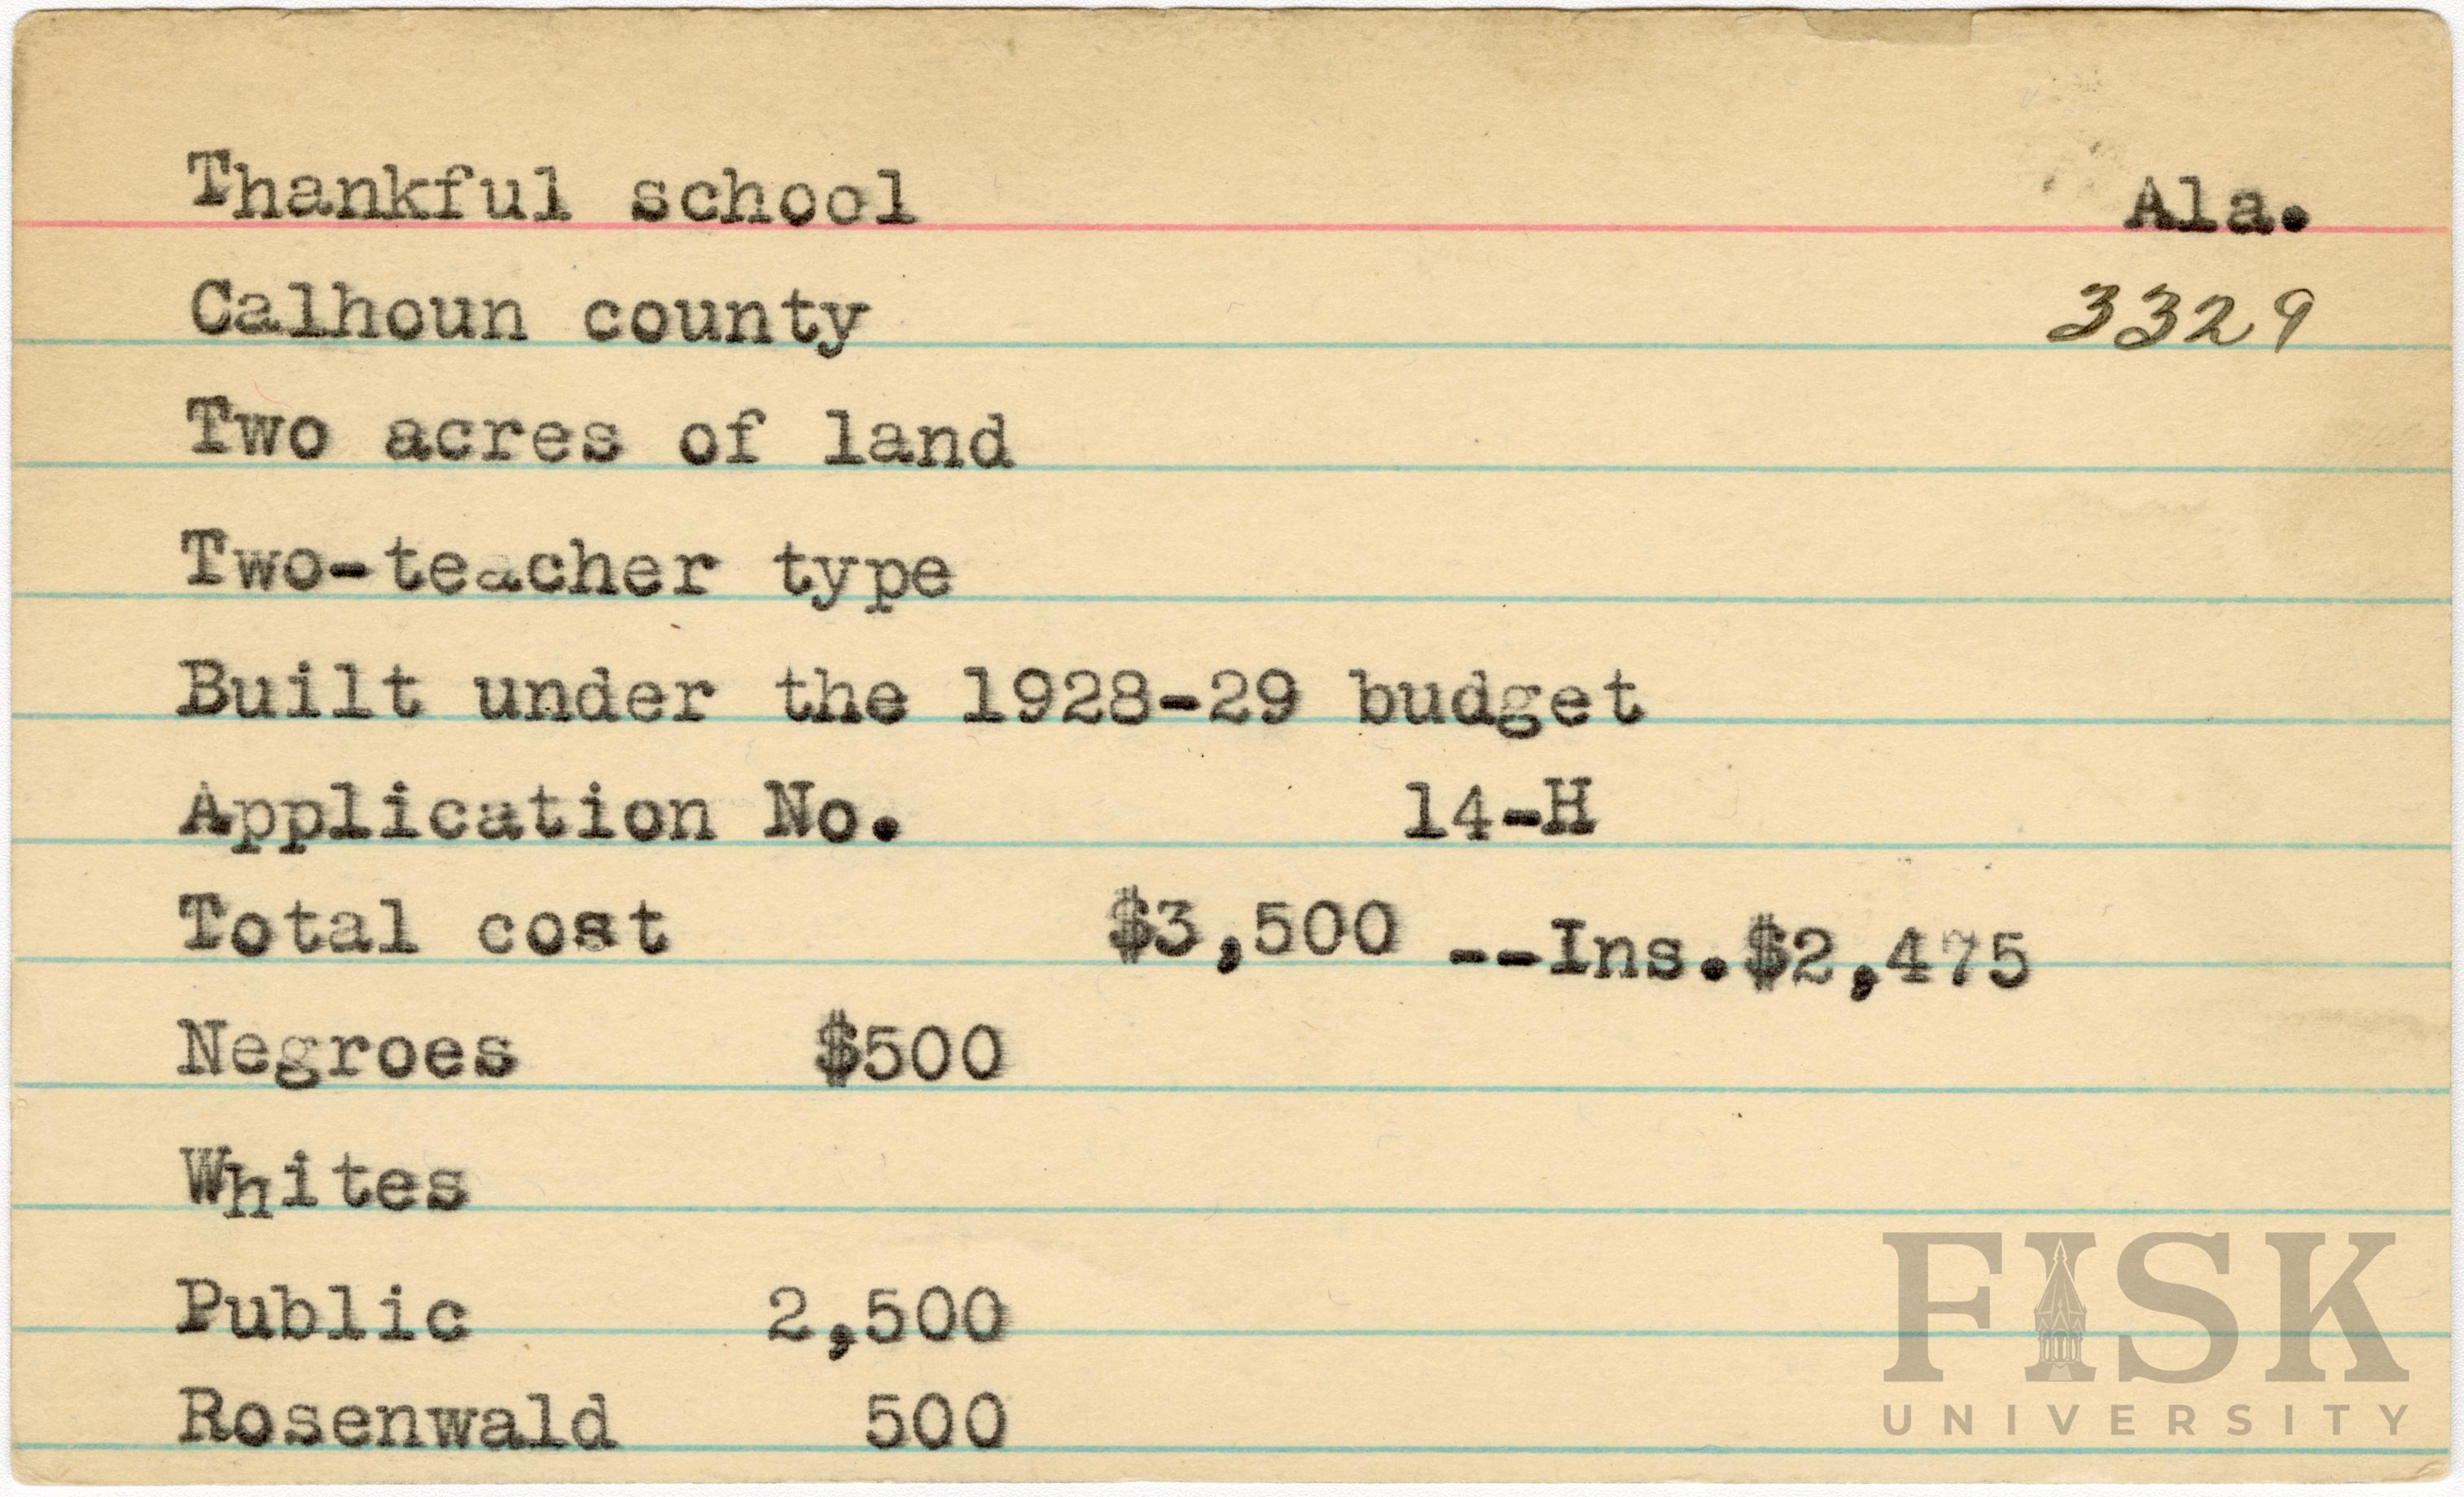 Thankful school Ala.
Calhoun county 3329
Two acres of land
Two-teacher type
Built under the 1928-29 budget
Application No. 14-H
Total cost $3,500 --Ins.$2,475
Negroes $500
Whites
Public 2,500
Rosenwald 500
FISK
UNIVERSITY